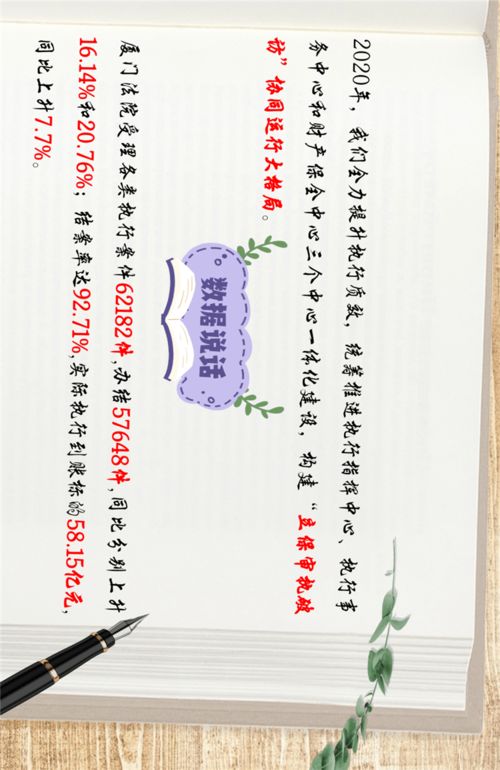 2020年，我们全力提升执行质效，统筹推进执行指挥中心、执行事
务中心和财产保全中心三个中心一体化建设，构建“立保审执破
访”协同运行大格局。
数据说话
厦门法院受理各类执行案件62182件,办结57648件,同比分别上升
16.14%和20.76%；结案率达92.71%,实际执行到账标的58.15亿元,
同比上升7.7%。